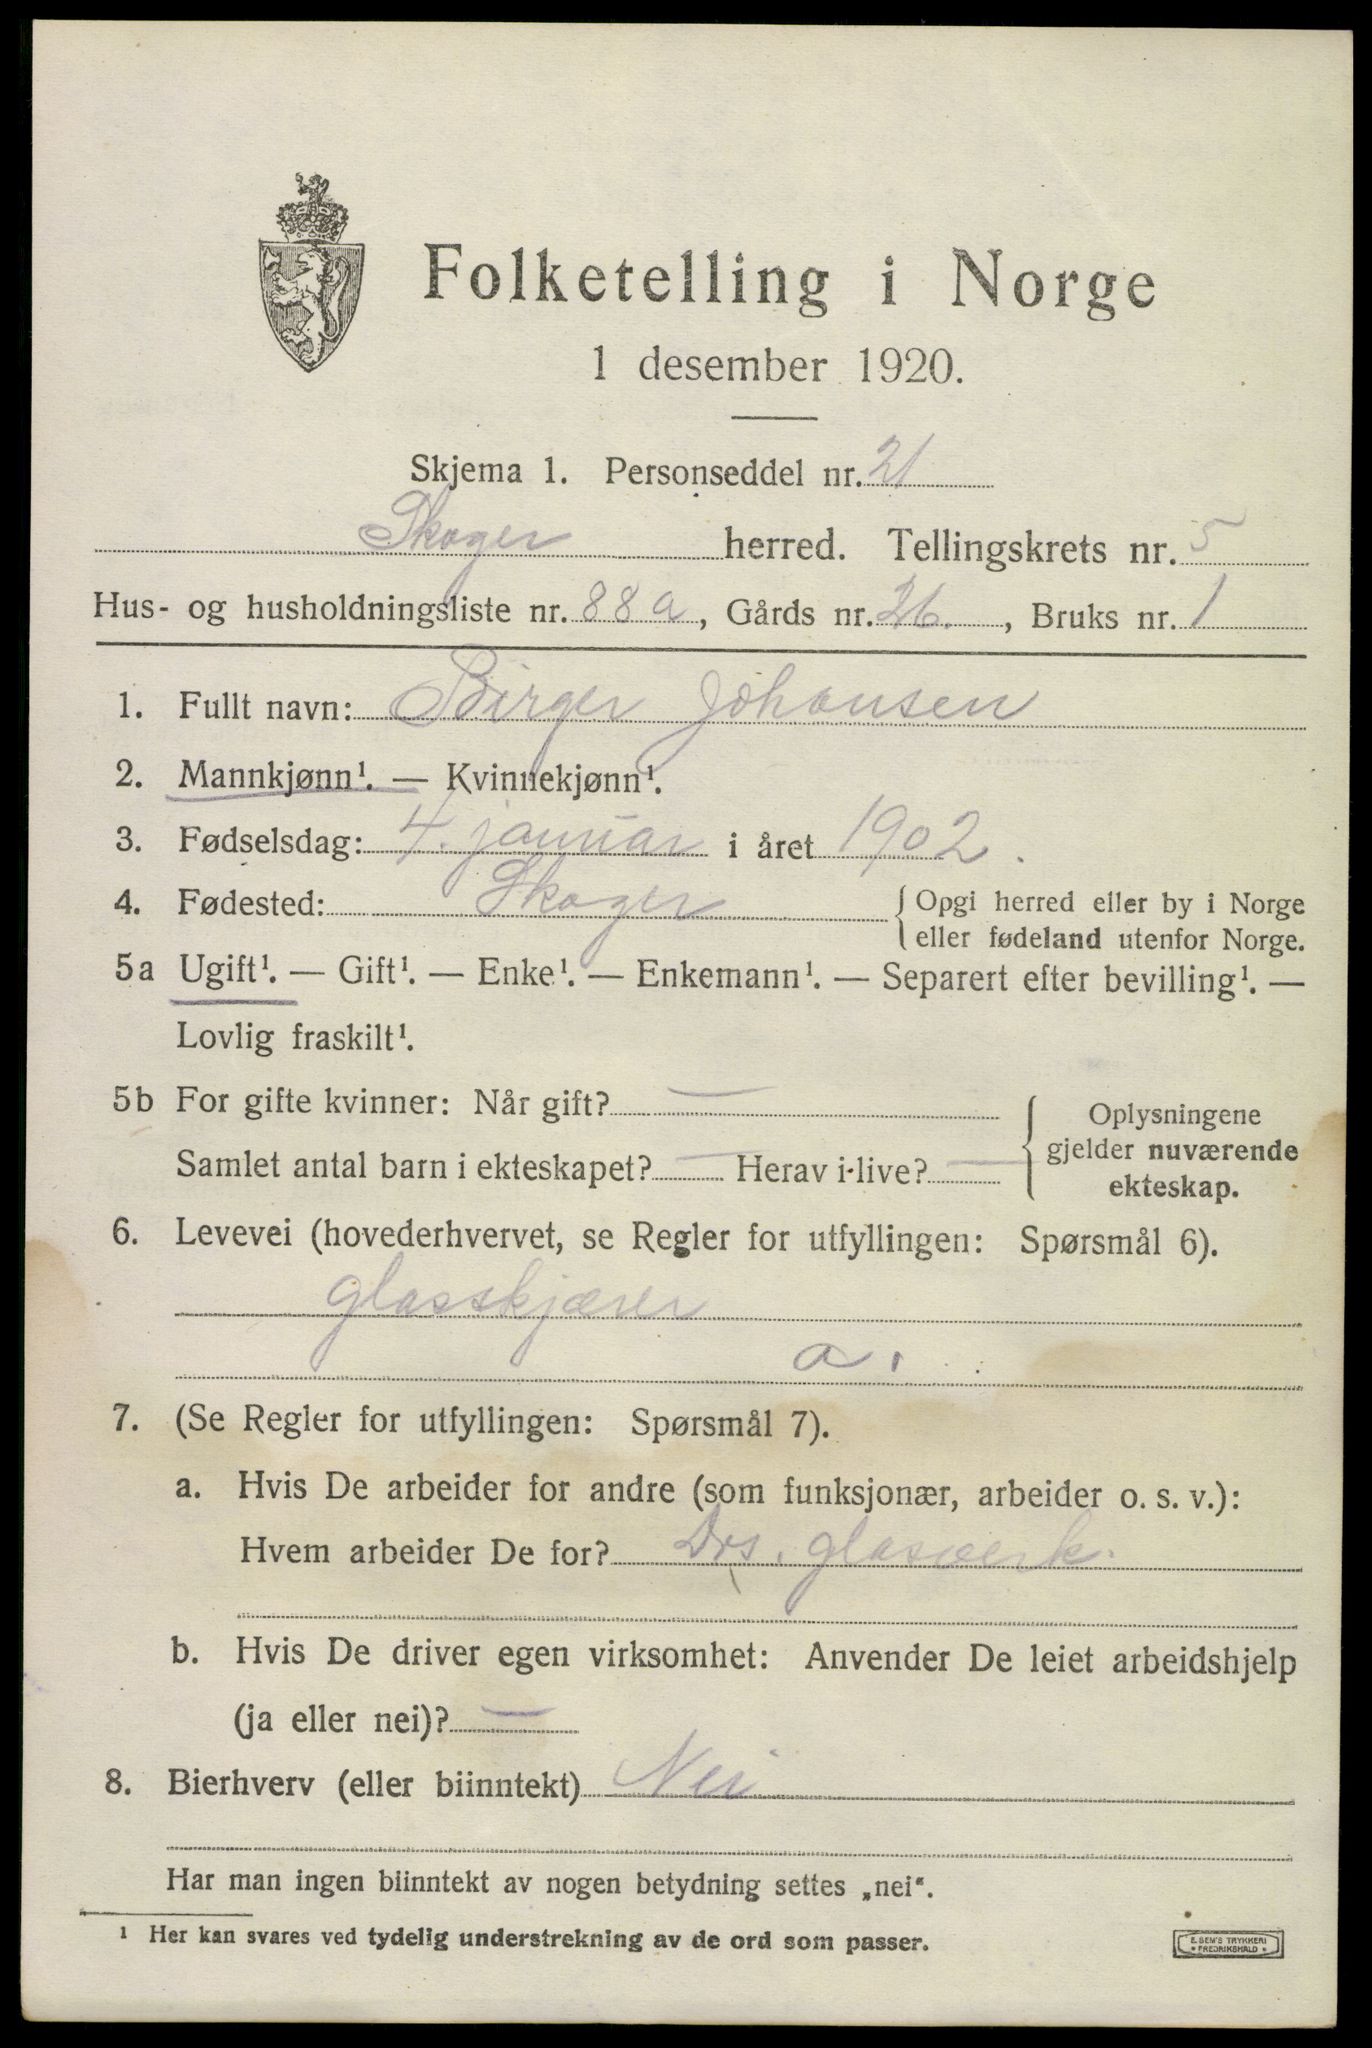 Folketelling i Norge
1 desember 1920.
Skjema 1. Personseddel nr. 21
Skoger herred. Tellingskrets nr. 5
Hus- og husholdningsliste nr. 88a, Gårds nr. 26., Bruks nr. 1
1. Fullt navn: Birger Johansen
2. Mannkjønn¹. — Kvinnekjønn¹.
3. Fødselsdag: 4. januar i året 1902.
4. Fødested: Skoger { Opgi herred eller by i Norge
eller fødeland utenfor Norge.
5a Ugift¹. — Gift¹. — Enke¹. — Enkemann¹. — Separert efter bevilling¹. —
Lovlig fraskilt¹.
5b For gifte kvinner: Når gift? —
Samlet antal barn i ekteskapet? — Herav i live? —
{ Oplysningene
gjelder nuværende
ekteskap.
6. Levevei (hovederhvervet, se Regler for utfyllingen: Spørsmål 6).
glasskjærer
a.
7. (Se Regler for utfyllingen: Spørsmål 7).
a. Hvis De arbeider for andre (som funksjonær, arbeider o. s. v.):
Hvem arbeider De for? Drs. glasverk.
b. Hvis De driver egen virksomhet: Anvender De leiet arbeidshjelp
(ja eller nei)? —
8. Bierhverv (eller biinntekt) Nei
Har man ingen biinntekt av nogen betydning settes „nei“.
¹ Her kan svares ved tydelig understrekning av de ord som passer.
E. SEM'S TRYKKERI
* FREDRIKSHALD *